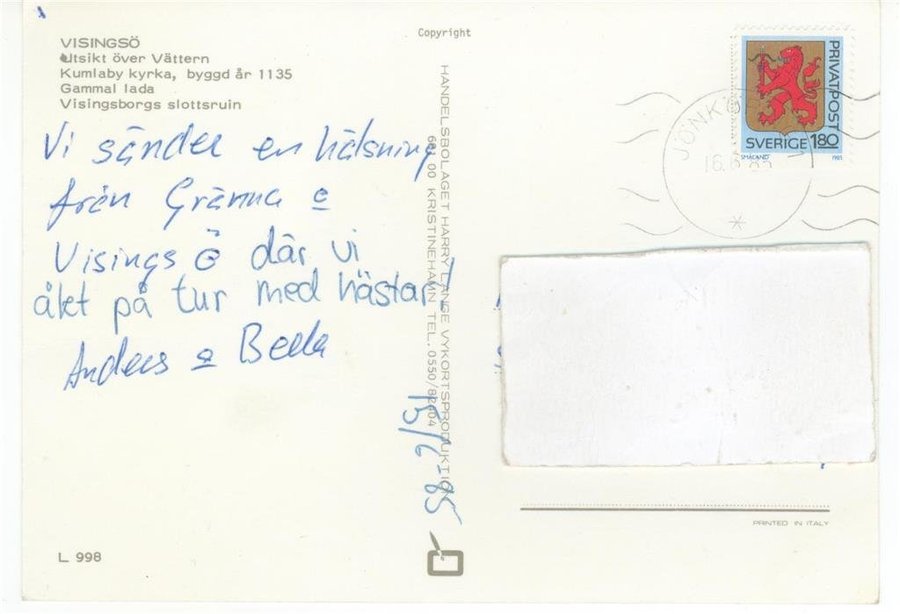 VISINGSÖ
Utsikt över Vättern
Kumlaby kyrka, byggd år 1135
Gammal lada
Visingsborgs slottsruin
Vi sänder en hälsning
från Gränna o
Visings Ö där vi
åkt på tur med hästar!
Anders o Bella
L 998
Copyright
HANDELSBOLAGET HARRY LANGE VYKORTSPRODUKTION
681 00 KRISTINEHAMN TEL. 0550/82404
15/6-85
PRIVATPOST
SVERIGE 180
SMÅLAND 1985
JÖNKÖ
16.6 85
PRINTED IN ITALY